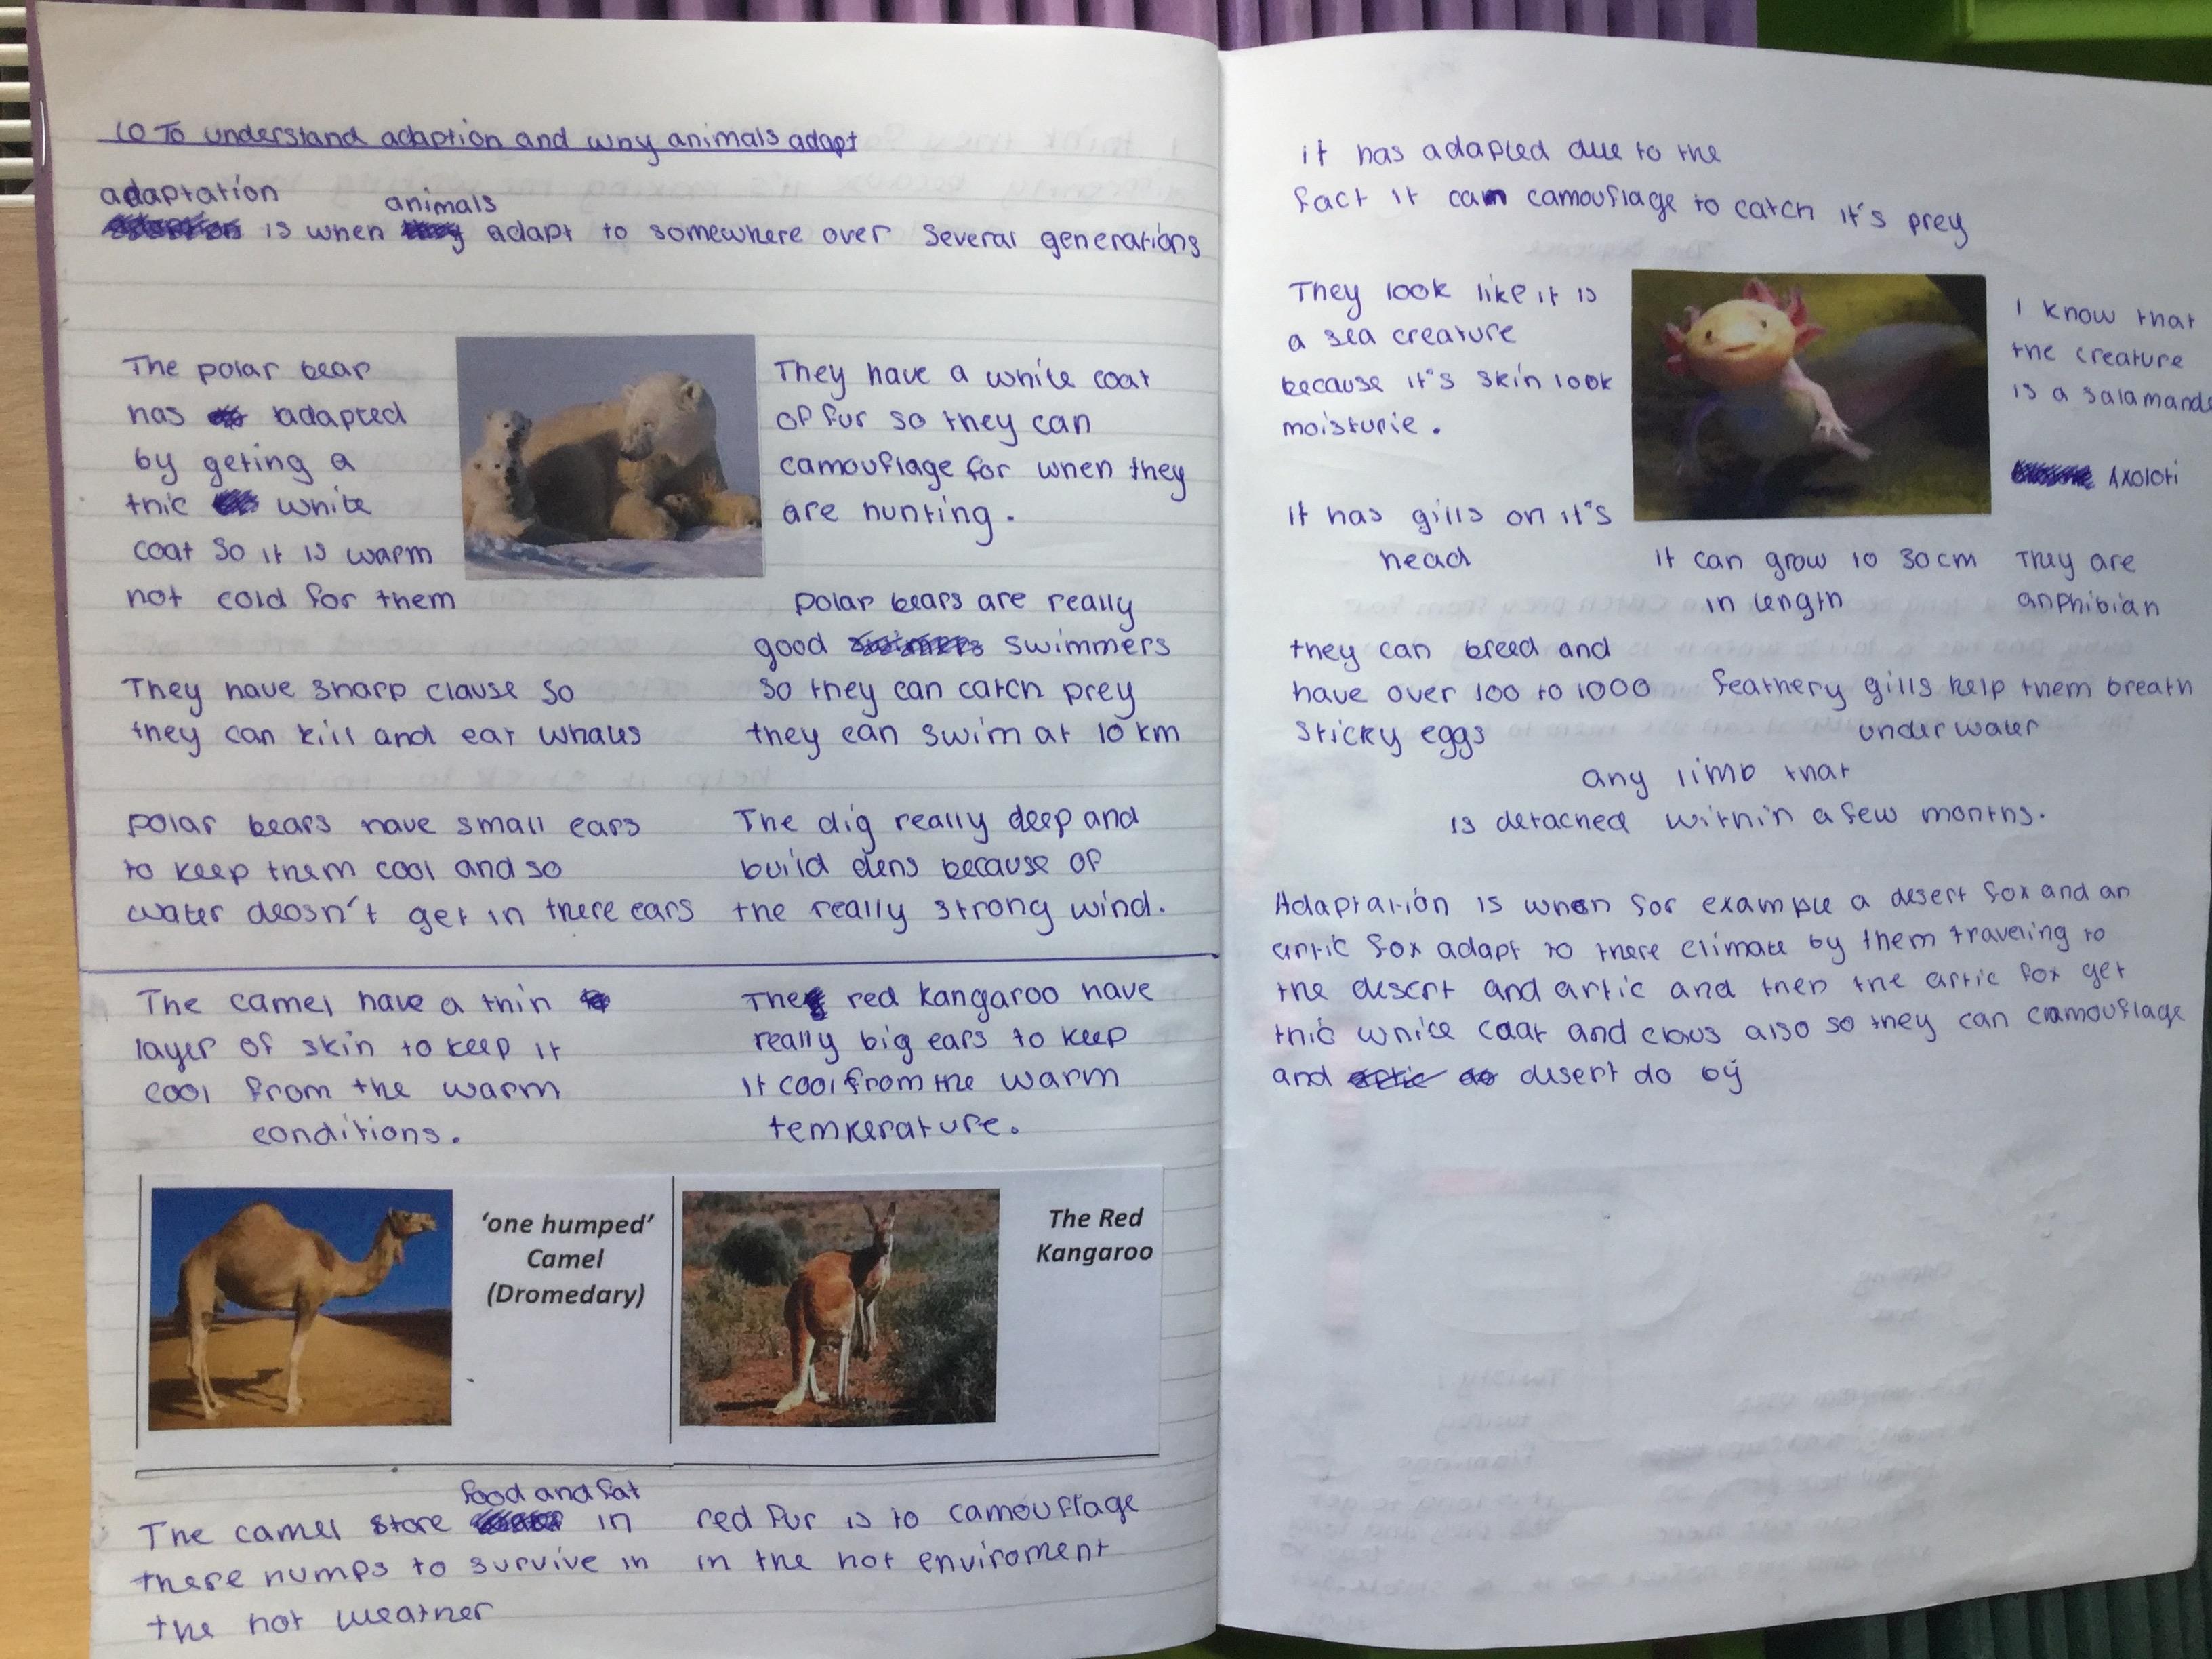 LO To understand adaption and why animals adapt
adaptation
animals
is when adapt to somewhere over several generations
The polar bear
has adapted
by geting a
thic white
coat so it is warm
not cold for them
They have a white coat
of fur so they can
camouflage for when they
are hunting.
polar bears are really
good swimmers
so they can catch prey
they can swim at 10 km
They have sharp clause so
they can kill and eat whals
polar bears have small ears
to keep them cool and so
water deosn't get in there ears
The dig really deep and
build dens because of
the really strong wind.
The camel have a thin
layer of skin to keep it
cool from the warm
conditions.
The red kangaroo have
really big ears to keep
it cool from the warm
temperature.
'one humped'
Camel
(Dromedary)
The Red
Kangaroo
food and fat
The camel store in
there humps to survive in
the hot weather
red fur is to camouflage
in the hot enviroment
it has adapted due to the
fact it can camouflage to catch it's prey
They look like it is
a sea creature
because it's skin look
moisturie.
I know that
the creature
is a salamande
Axolotl
it has gills on it's
head
it can grow 10 30cm
in length
They are
anphibian
they can breed and
have over 100 to 1000
sticky eggs
feathery gills help them breath
under water
any limb that
is detached within a few months.
Adaptation is when for example a desert fox and an
artic fox adapt to there climate by them traveling to
the desert and artic and then the artic fox get
thic white coat and claus also so they can camouflage
and desert do by